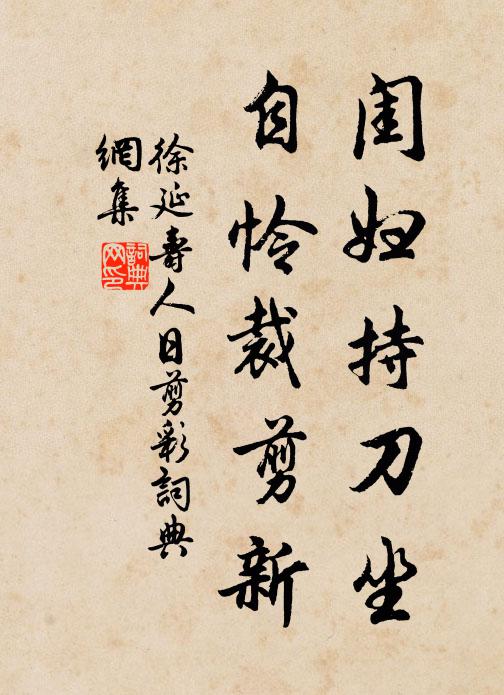 闺妇持刀坐
自怜裁剪新
徐延壽人日剪彩詞典
網集
詞典網印